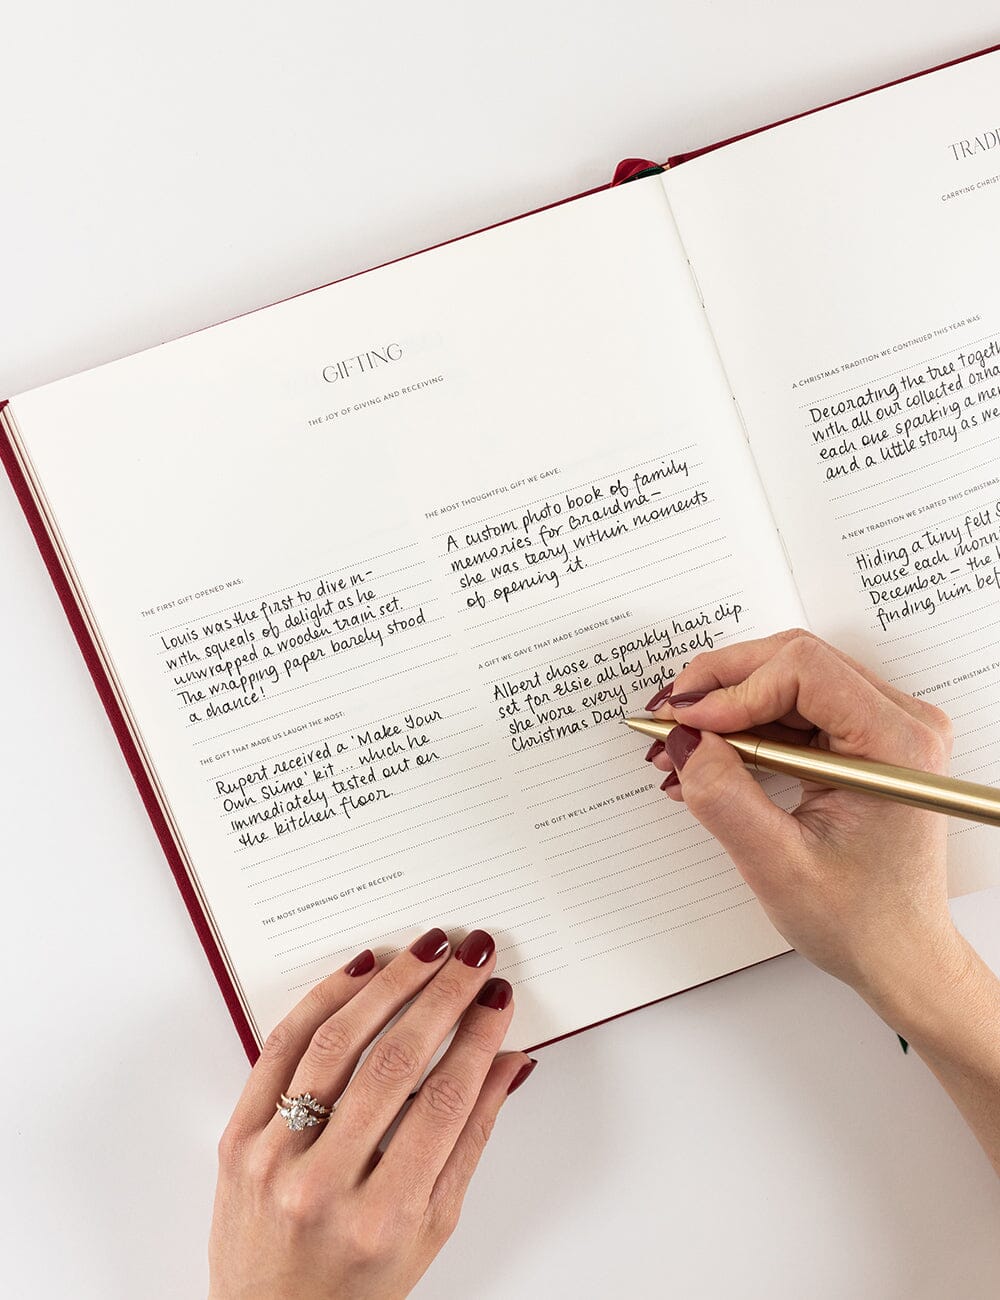 GIFTING
THE JOY OF GIVING AND RECEIVING
THE FIRST GIFT OPENED WAS:
Louis was the first to dive in–
with squeals of delight as he
unwrapped a wooden train set.
The wrapping paper barely stood
a chance!
THE GIFT THAT MADE US LAUGH THE MOST:
Rupert received a 'Make Your
Own Slime' kit... which he
immediately tested out on
the kitchen floor.
THE MOST SURPRISING GIFT WE RECEIVED:
THE MOST THOUGHTFUL GIFT WE GAVE:
A custom photo book of family
memories for Grandma–
she was teary within moments
of opening it.
A GIFT WE GAVE THAT MADE SOMEONE SMILE:
Albert chose a sparkly hair clip
set for Elsie all by himself–
she wore every single
Christmas Day.
ONE GIFT WE'LL ALWAYS REMEMBER:
TRADI
CARRYING CHRIST
A CHRISTMAS TRADITION WE CONTINUED THIS YEAR WAS:
Decorating the tree togeth
with all our collected orna
each one sparking a mem
and a little story as we
A NEW TRADITION WE STARTED THIS CHRISTMAS
Hiding a tiny felt
house each morni
December – the
finding him bef
FAVOURITE CHRISTMAS